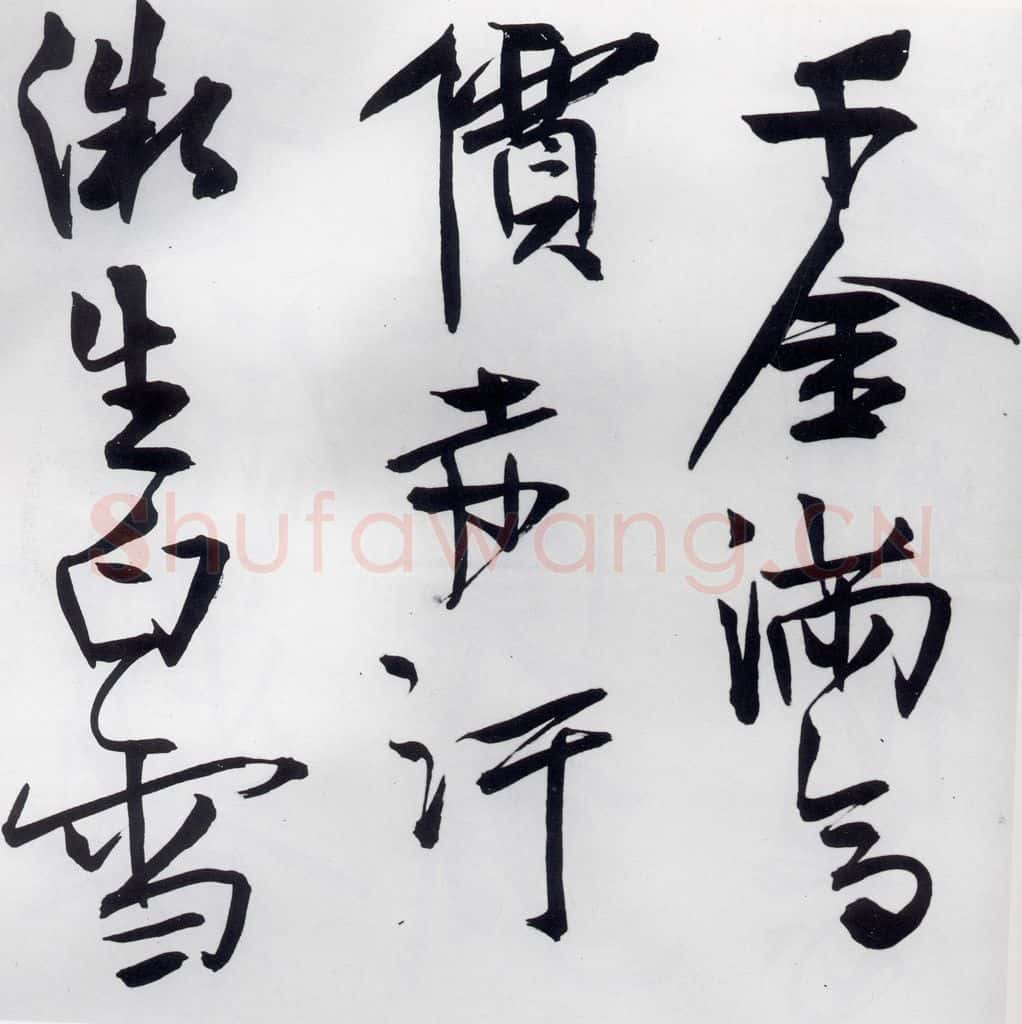 千金滿高
價赤汗
微生白雪
Shufawang.CN